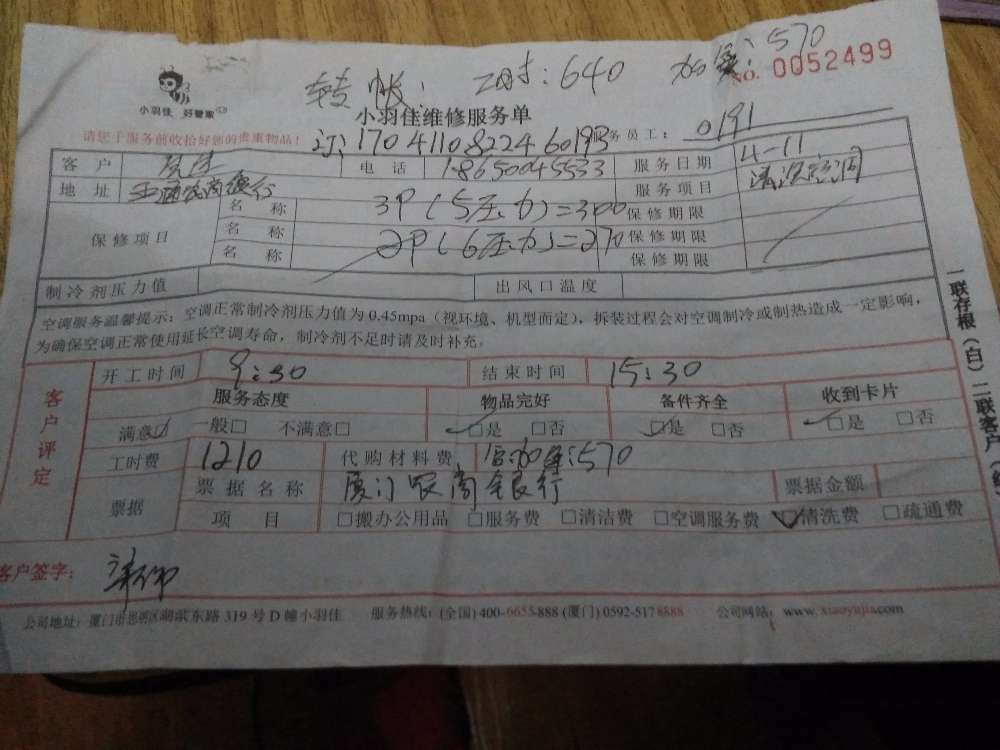 转帐: 码: 640 加氟: 570
小羽佳 好管家
NO. 0052499
小羽佳维修服务单
请您于服务前收拾好您的贵重物品!
订: 170411082246019 服务员工: 0191
客户 电话 18650045533 服务日期 4-11
地址 农商银行 服务项目 清洗空调
保修项目
名称 3P(5压力)=300 保修期限
名称 2P(6压力)=270 保修期限
名称 保修期限
制冷剂压力值 出风口温度
空调服务温馨提示:空调正常制冷剂压力值为 0.45mpa(视环境、机型而定),拆装过程会对空调制冷或制热造成一定影响,
为确保空调正常使用延长空调寿命,制冷剂不足时请及时补充。
客户评定
开工时间 9:30 结束时间 15:30
服务态度 物品完好 备件齐全 收到卡片
满意☑ 一般□ 不满意□ ☑是 □否 ☑是 □否 ☑是 □否
工时费 1210 代购材料费 含加氟:570
票据 票据名称 厦门农商银行 票据金额
项目 □搬办公用品 □服务费 □清洁费 □空调服务费 ☑清洗费 □疏通费
客户签字:
公司地址:厦门市思明区湖滨东路 319 号 D 幢小羽佳 服务热线:(全国)400-6655-888 (厦门)0592-5178888 公司网站:www.xiaoyujia.com
一联存根(白) 二联客户(